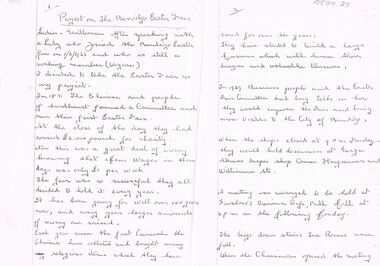 Project on The Bendigo Easter Fair
Ladies & Gentlemen After speaking with
a Lady who joined the Bendigo Easter
fair on and who is still a
working member
I decided to take the Easter Fair as
my project:
In 1871 The Chinese and people
of Sandhurst formed a Committee and
ran their first Easter Fair
At the close of the day they had
raised pounds for charity
Now this was a great deal of money
knowing that Mens Wages in those
days was only per week
The fair was so successful they all
decided to hold it every year.
It has been going for well over 100 years
now, and every year large amounts
of money are raised.
Ever since the first Carnival the
Chinese have collected and bought many
religious items which they have
2
cared for over the years.
They have started to build a large
Museum which will house their
dragon and valuable treasures.
In 1929 Business people and the Easter
Fair Committee had long talks on how
they could improve the Fair and bring
more visitors to the City of Bendigo.
When the shops closed at 9 p.m. Friday
they would hold discussions at
shop Corner Hargreaves and
Williamson St.
A meeting was arranged to be held at
Cafe, Pall Mall at
9 p.m on the following Friday.
The large down stairs Tea Rooms were
full.
When the Chairman opened the meeting